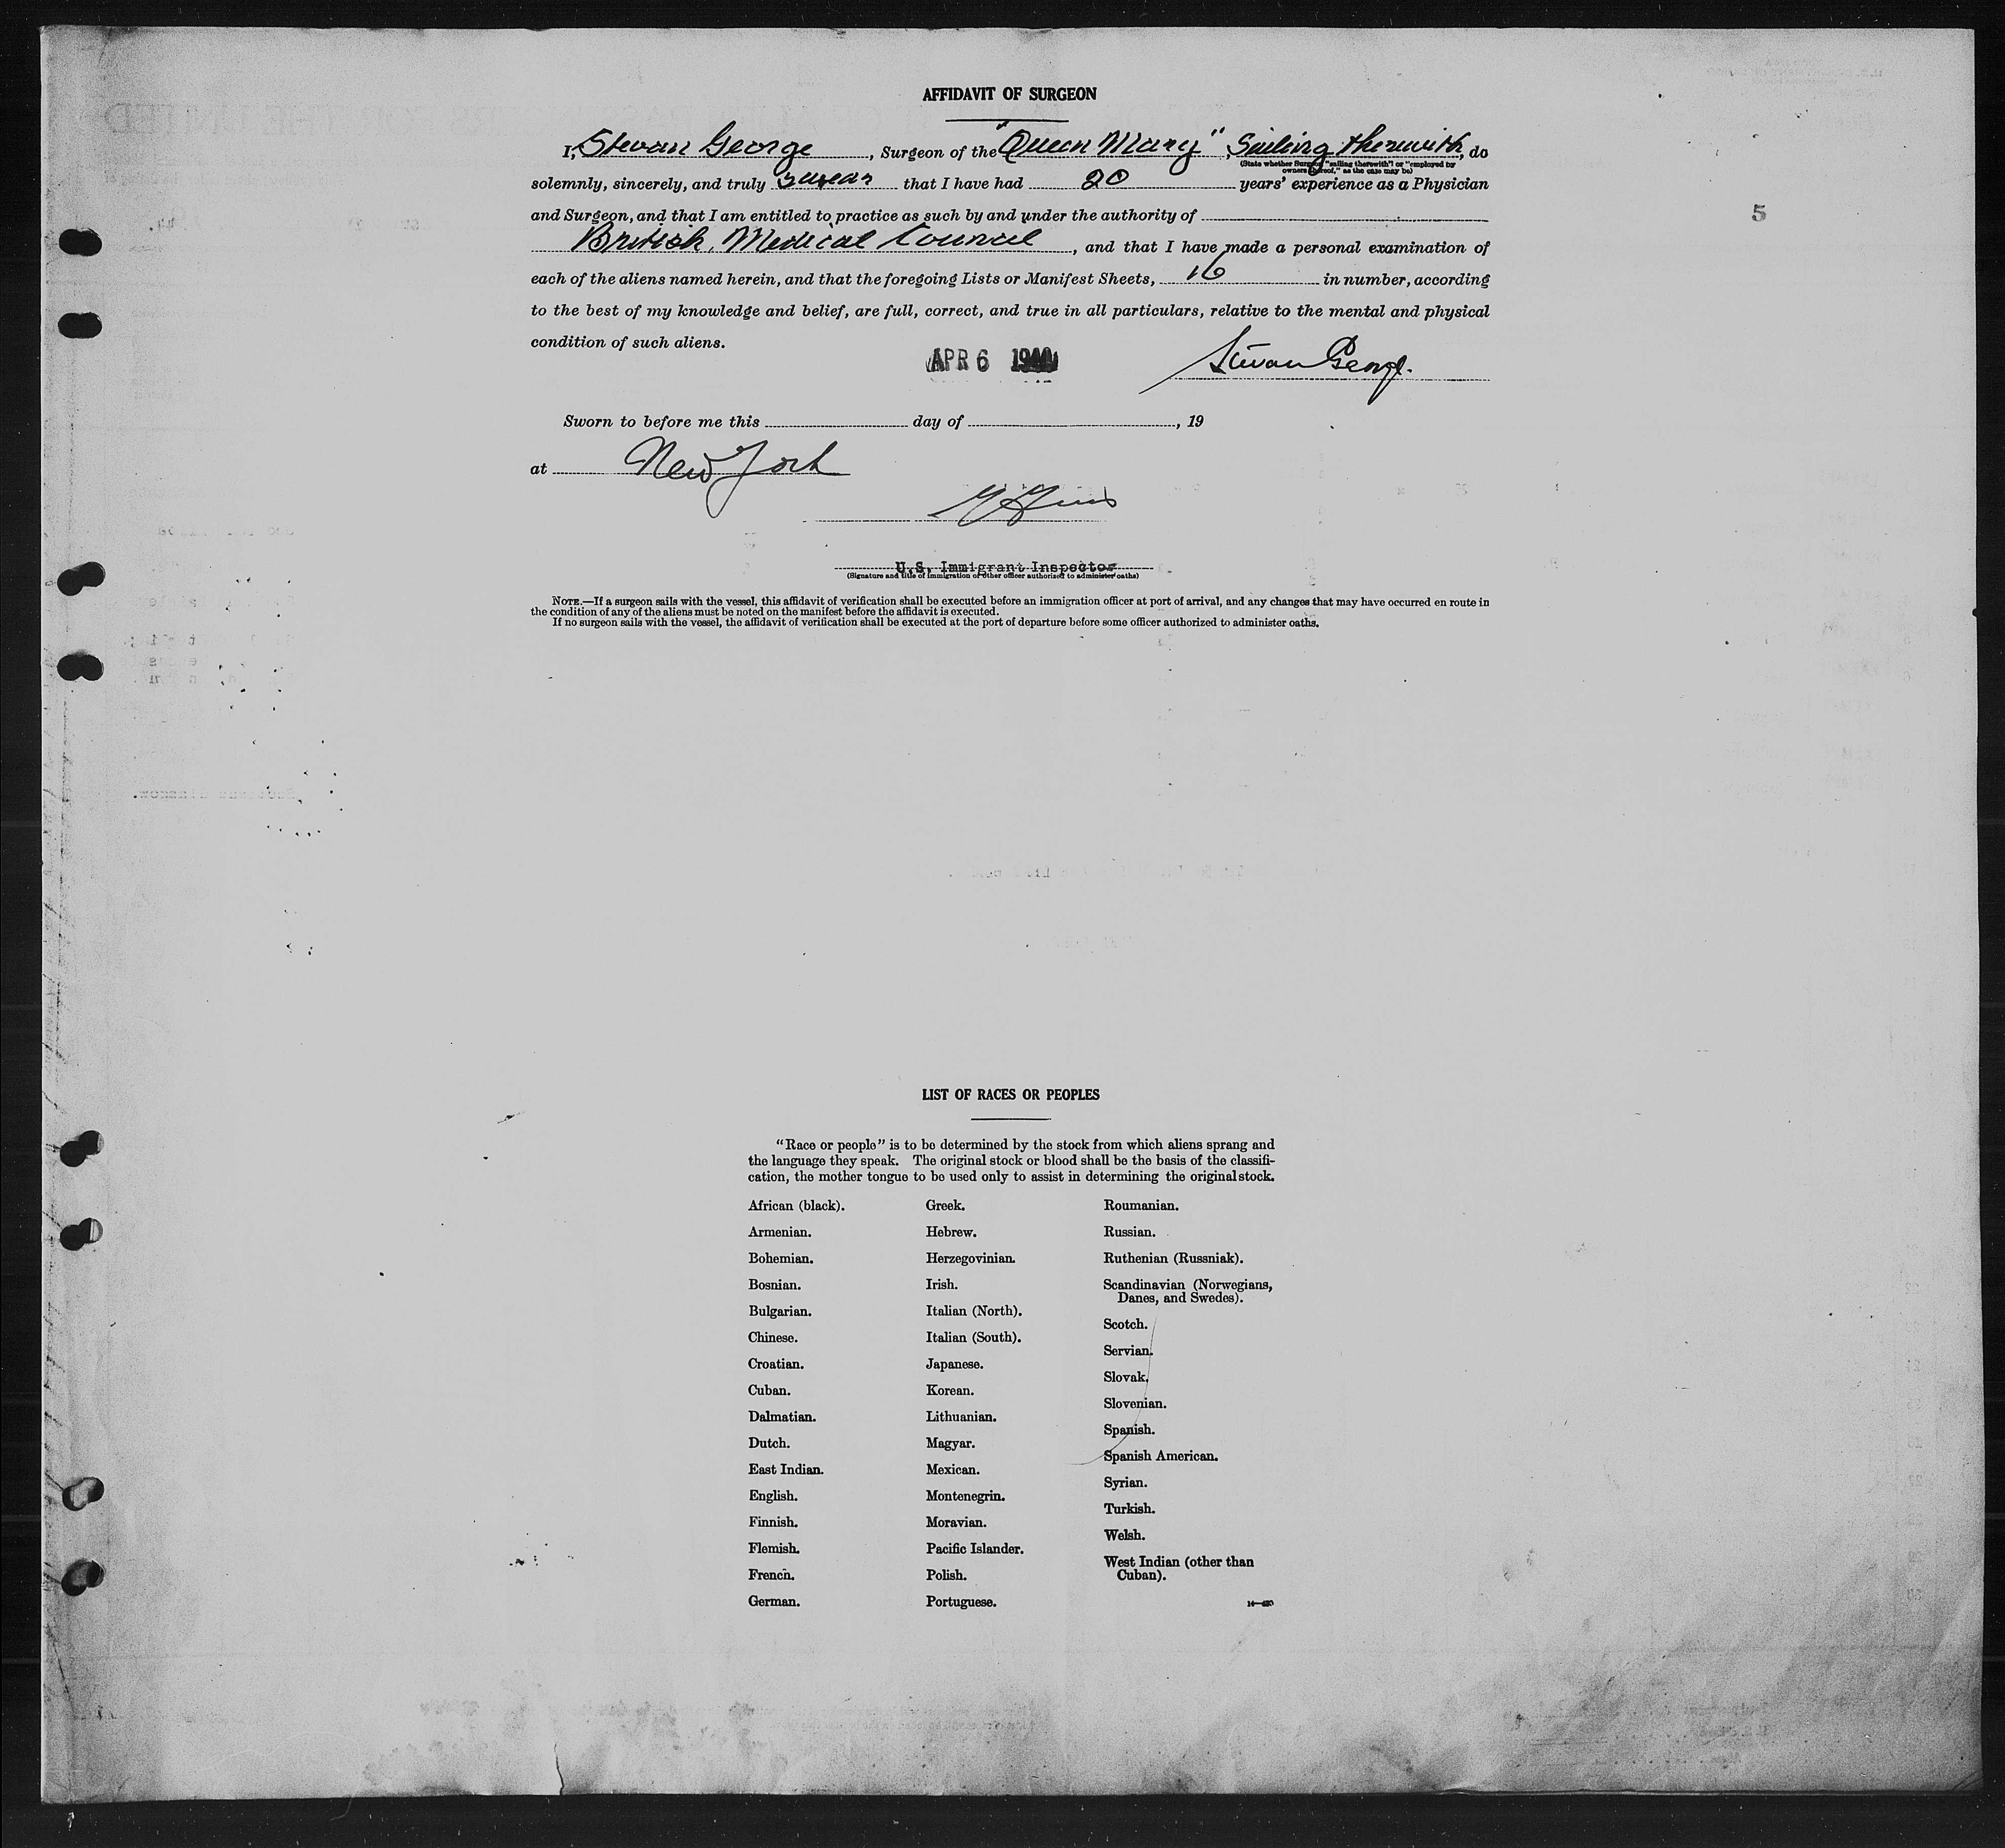 AFFIDAVIT OF SURGEON
I, Stevan George, Surgeon of the "Queen Mary", Sailing therewith, do
(State whether Surgeon "sailing therewith" or "employed by
owners thereof," as the case may be)
solemnly, sincerely, and truly swear that I have had 20 years' experience as a Physician
and Surgeon, and that I am entitled to practice as such by and under the authority of
British Medical Council, and that I have made a personal examination of
5
each of the aliens named herein, and that the foregoing Lists or Manifest Sheets, 16 in number, according
to the best of my knowledge and belief, are full, correct, and true in all particulars, relative to the mental and physical
condition of such aliens.
APR 6 1940
Stevan George.
Sworn to before me this day of , 19
at New York
U.S. Immigrant Inspector
(Signature and title of immigration or other officer authorized to administer oaths)
NOTE.—If a surgeon sails with the vessel, this affidavit of verification shall be executed before an immigration officer at port of arrival, and any changes that may have occurred en route in
the condition of any of the aliens must be noted on the manifest before the affidavit is executed.
If no surgeon sails with the vessel, the affidavit of verification shall be executed at the port of departure before some officer authorized to administer oaths.
LIST OF RACES OR PEOPLES
"Race or people" is to be determined by the stock from which aliens sprang and
the language they speak. The original stock or blood shall be the basis of the classifi-
cation, the mother tongue to be used only to assist in determining the original stock.
African (black).
Armenian.
Bohemian.
Bosnian.
Bulgarian.
Chinese.
Croatian.
Cuban.
Dalmatian.
Dutch.
East Indian.
English.
Finnish.
Flemish.
French.
German.
Greek.
Hebrew.
Herzegovinian.
Irish.
Italian (North).
Italian (South).
Japanese.
Korean.
Lithuanian.
Magyar.
Mexican.
Montenegrin.
Moravian.
Pacific Islander.
Polish.
Portuguese.
Roumanian.
Russian.
Ruthenian (Russniak).
Scandinavian (Norwegians,
Danes, and Swedes).
Scotch.
Servian.
Slovak.
Slovenian.
Spanish.
Spanish American.
Syrian.
Turkish.
Welsh.
West Indian (other than
Cuban).